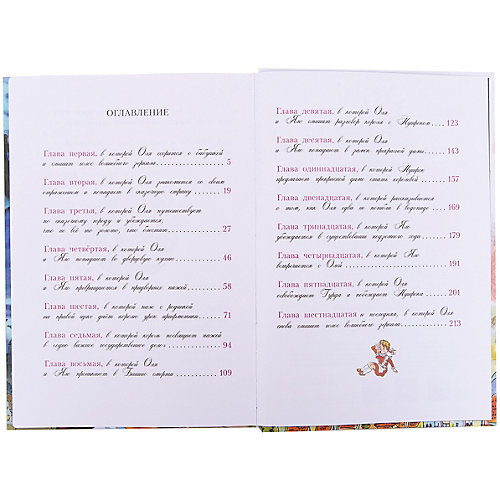 ОГЛАВЛЕНИЕ
Глава первая, в которой Оля ссорится с бабушкой
и слышит голос волшебного зеркала 5
Глава вторая, в которой Оля знакомится со своим
отражением и попадает в сказочную страну 19
Глава третья, в которой Оля путешествует
по сказочному городу и убеждается,
что не всё то золото, что блестит 27
Глава четвёртая, в которой Оля
и Яло попадают во дворцовую кухню 45
Глава пятая, в которой Оля
и Яло превращаются в придворных пажей 58
Глава шестая, в которой паж с родинкой
на правой щеке даёт королю урок арифметики 71
Глава седьмая, в которой король посвящает пажей
в одно важное государственное дело 94
Глава восьмая, в которой Оля
и Яло проникают в Башню смерти 109
Глава девятая, в которой Оля
и Яло слышат разговор короля с Нушроком 123
Глава десятая, в которой Оля
и Яло попадают в замок прекрасной дамы 143
Глава одиннадцатая, в которой Нушрок
предлагает прекрасной даме стать королевой 157
Глава двенадцатая, в которой рассказывается
о том, как Оля едва не погибла в водопаде 169
Глава тринадцатая, в которой Яло
убеждается в существовании подземного хода 179
Глава четырнадцатая, в которой Яло
встречается с Олей 191
Глава пятнадцатая, в которой Оля
освобождает Гурда и побеждает Нушрока 201
Глава шестнадцатая и последняя, в которой Оля
снова слышит голос волшебного зеркала 213